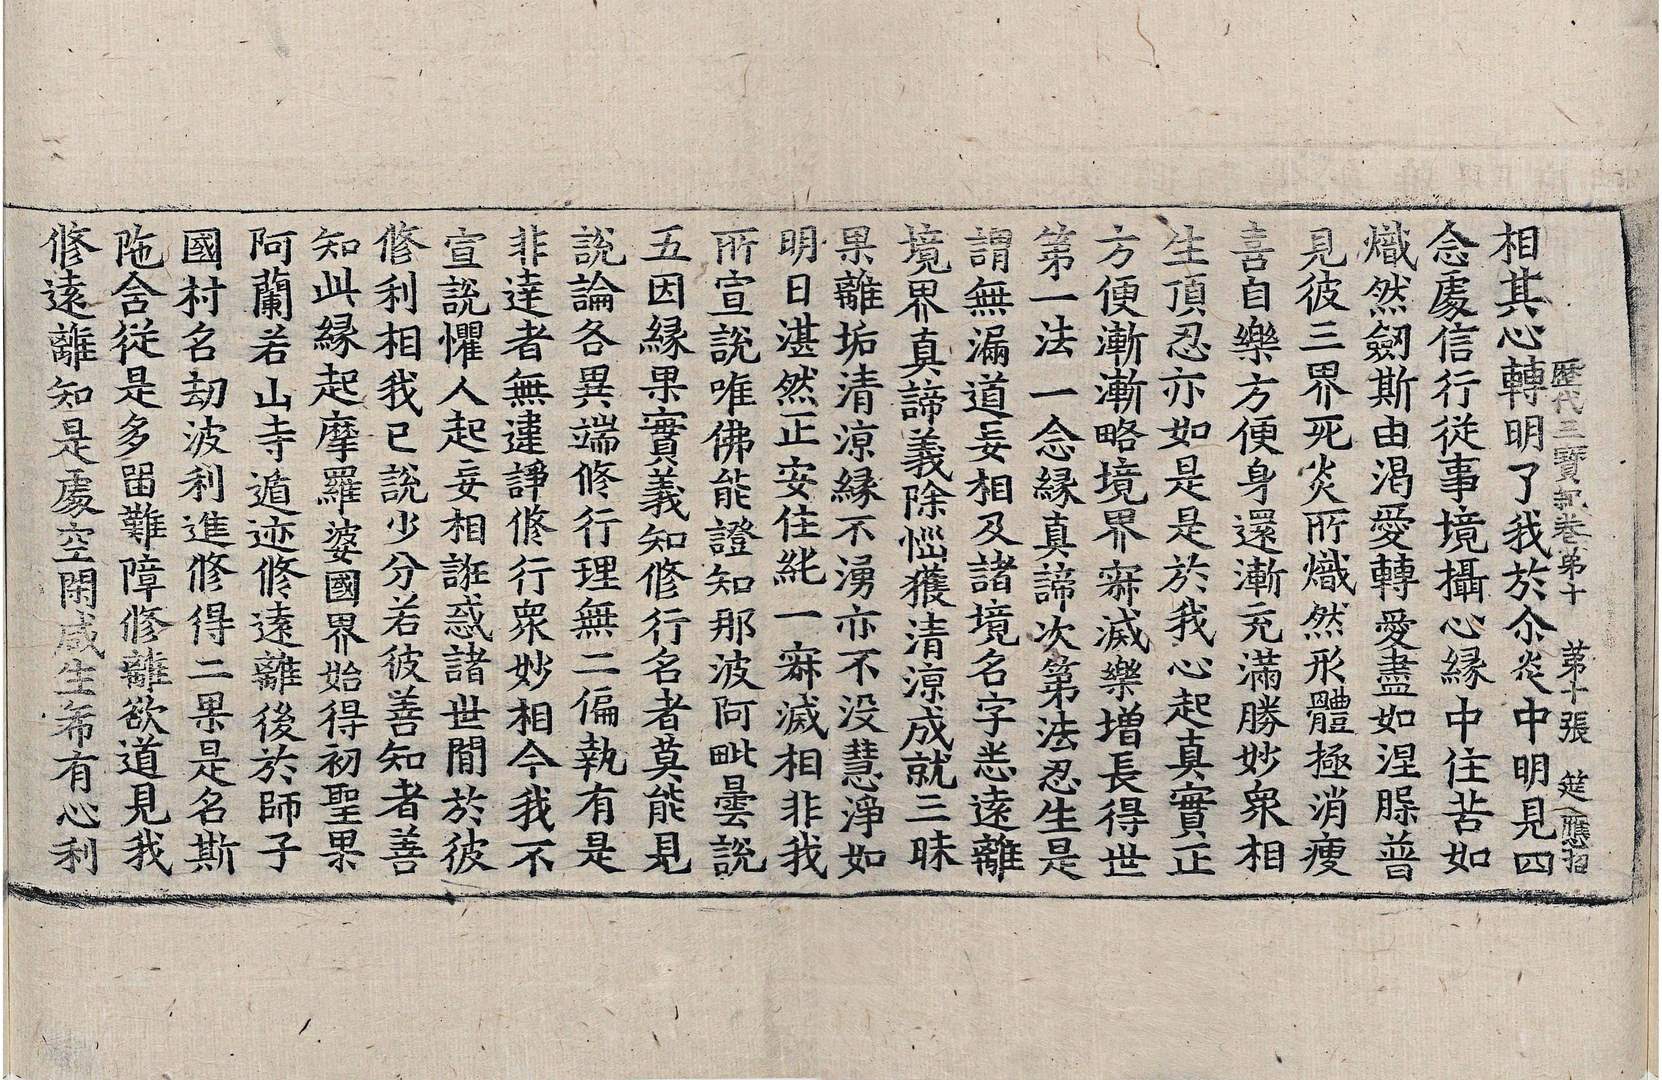 歷代三寶紀卷第十　第十張　筵　應招
相其心轉明了我於尒炎中明見四
念處信行從事境攝心緣中住苦如
熾然劒斯由渴愛轉愛盡如涅槃普
見彼三界死炎所熾然形體極消瘦
喜自樂方便身還漸充滿勝妙衆相
生頂忍亦如是是於我心起真實正
方便漸漸略境界寂滅樂增長得世
第一法一念緣真諦次第法忍生是
謂無漏道妄相及諸境名字悉遠離
境界真諦義除惱獲清涼成就三昧
果離垢清涼緣不湧亦不没慧淨如
明日湛然正安住純一寂滅相非我
所宣說唯佛能證知那波阿毗曇說
五因緣果實義知修行名者莫能見
說論各異端修行理無二偏執有是
非達者無違諍修行衆妙相今我不
宣說懼人起妄相誑惑諸世間於彼
修利相我已說少分若彼善知者善
知此緣起摩羅婆國界始得初聖果
阿蘭若山寺遁迹修遠離後於師子
國村名劫波利進修得二果是名斯
陁含從是多留難障修離欲道見我
修遠離知是處空閑咸生希有心利